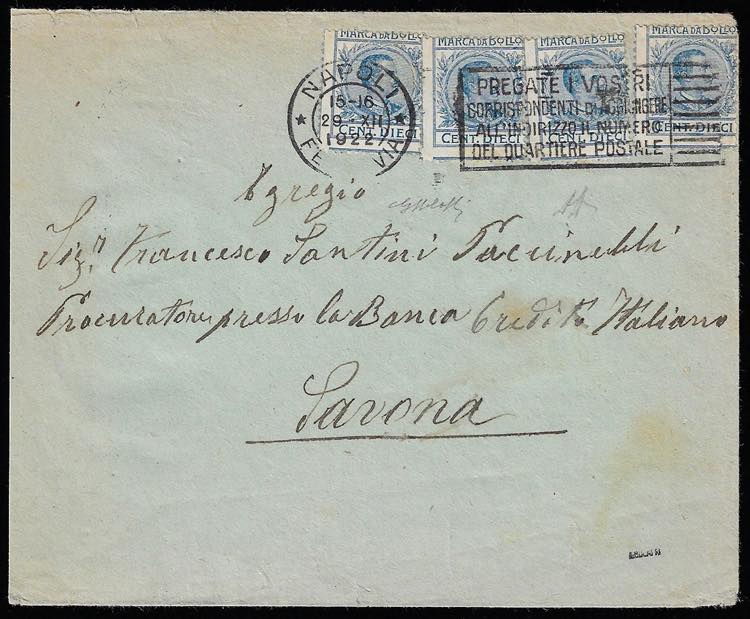 MARCA DA BOLLO MARCA DA BOLLO MARCA DA BOLLO MARCA DA BOLLO
CENT. DIECI CENT. DIECI CENT. DIECI CENT. DIECI
NAPOLI
15-16
29·XII
1922
FERROVIA
PREGATE I VOSTRI
CORRISPONDENTI DI AGGIUNGERE
ALL'INDIRIZZO IL NUMERO
DEL QUARTIERE POSTALE
Egregio
Sig.r Francesco Santini
Procuratore presso la Banca Credito Italiano
Savona